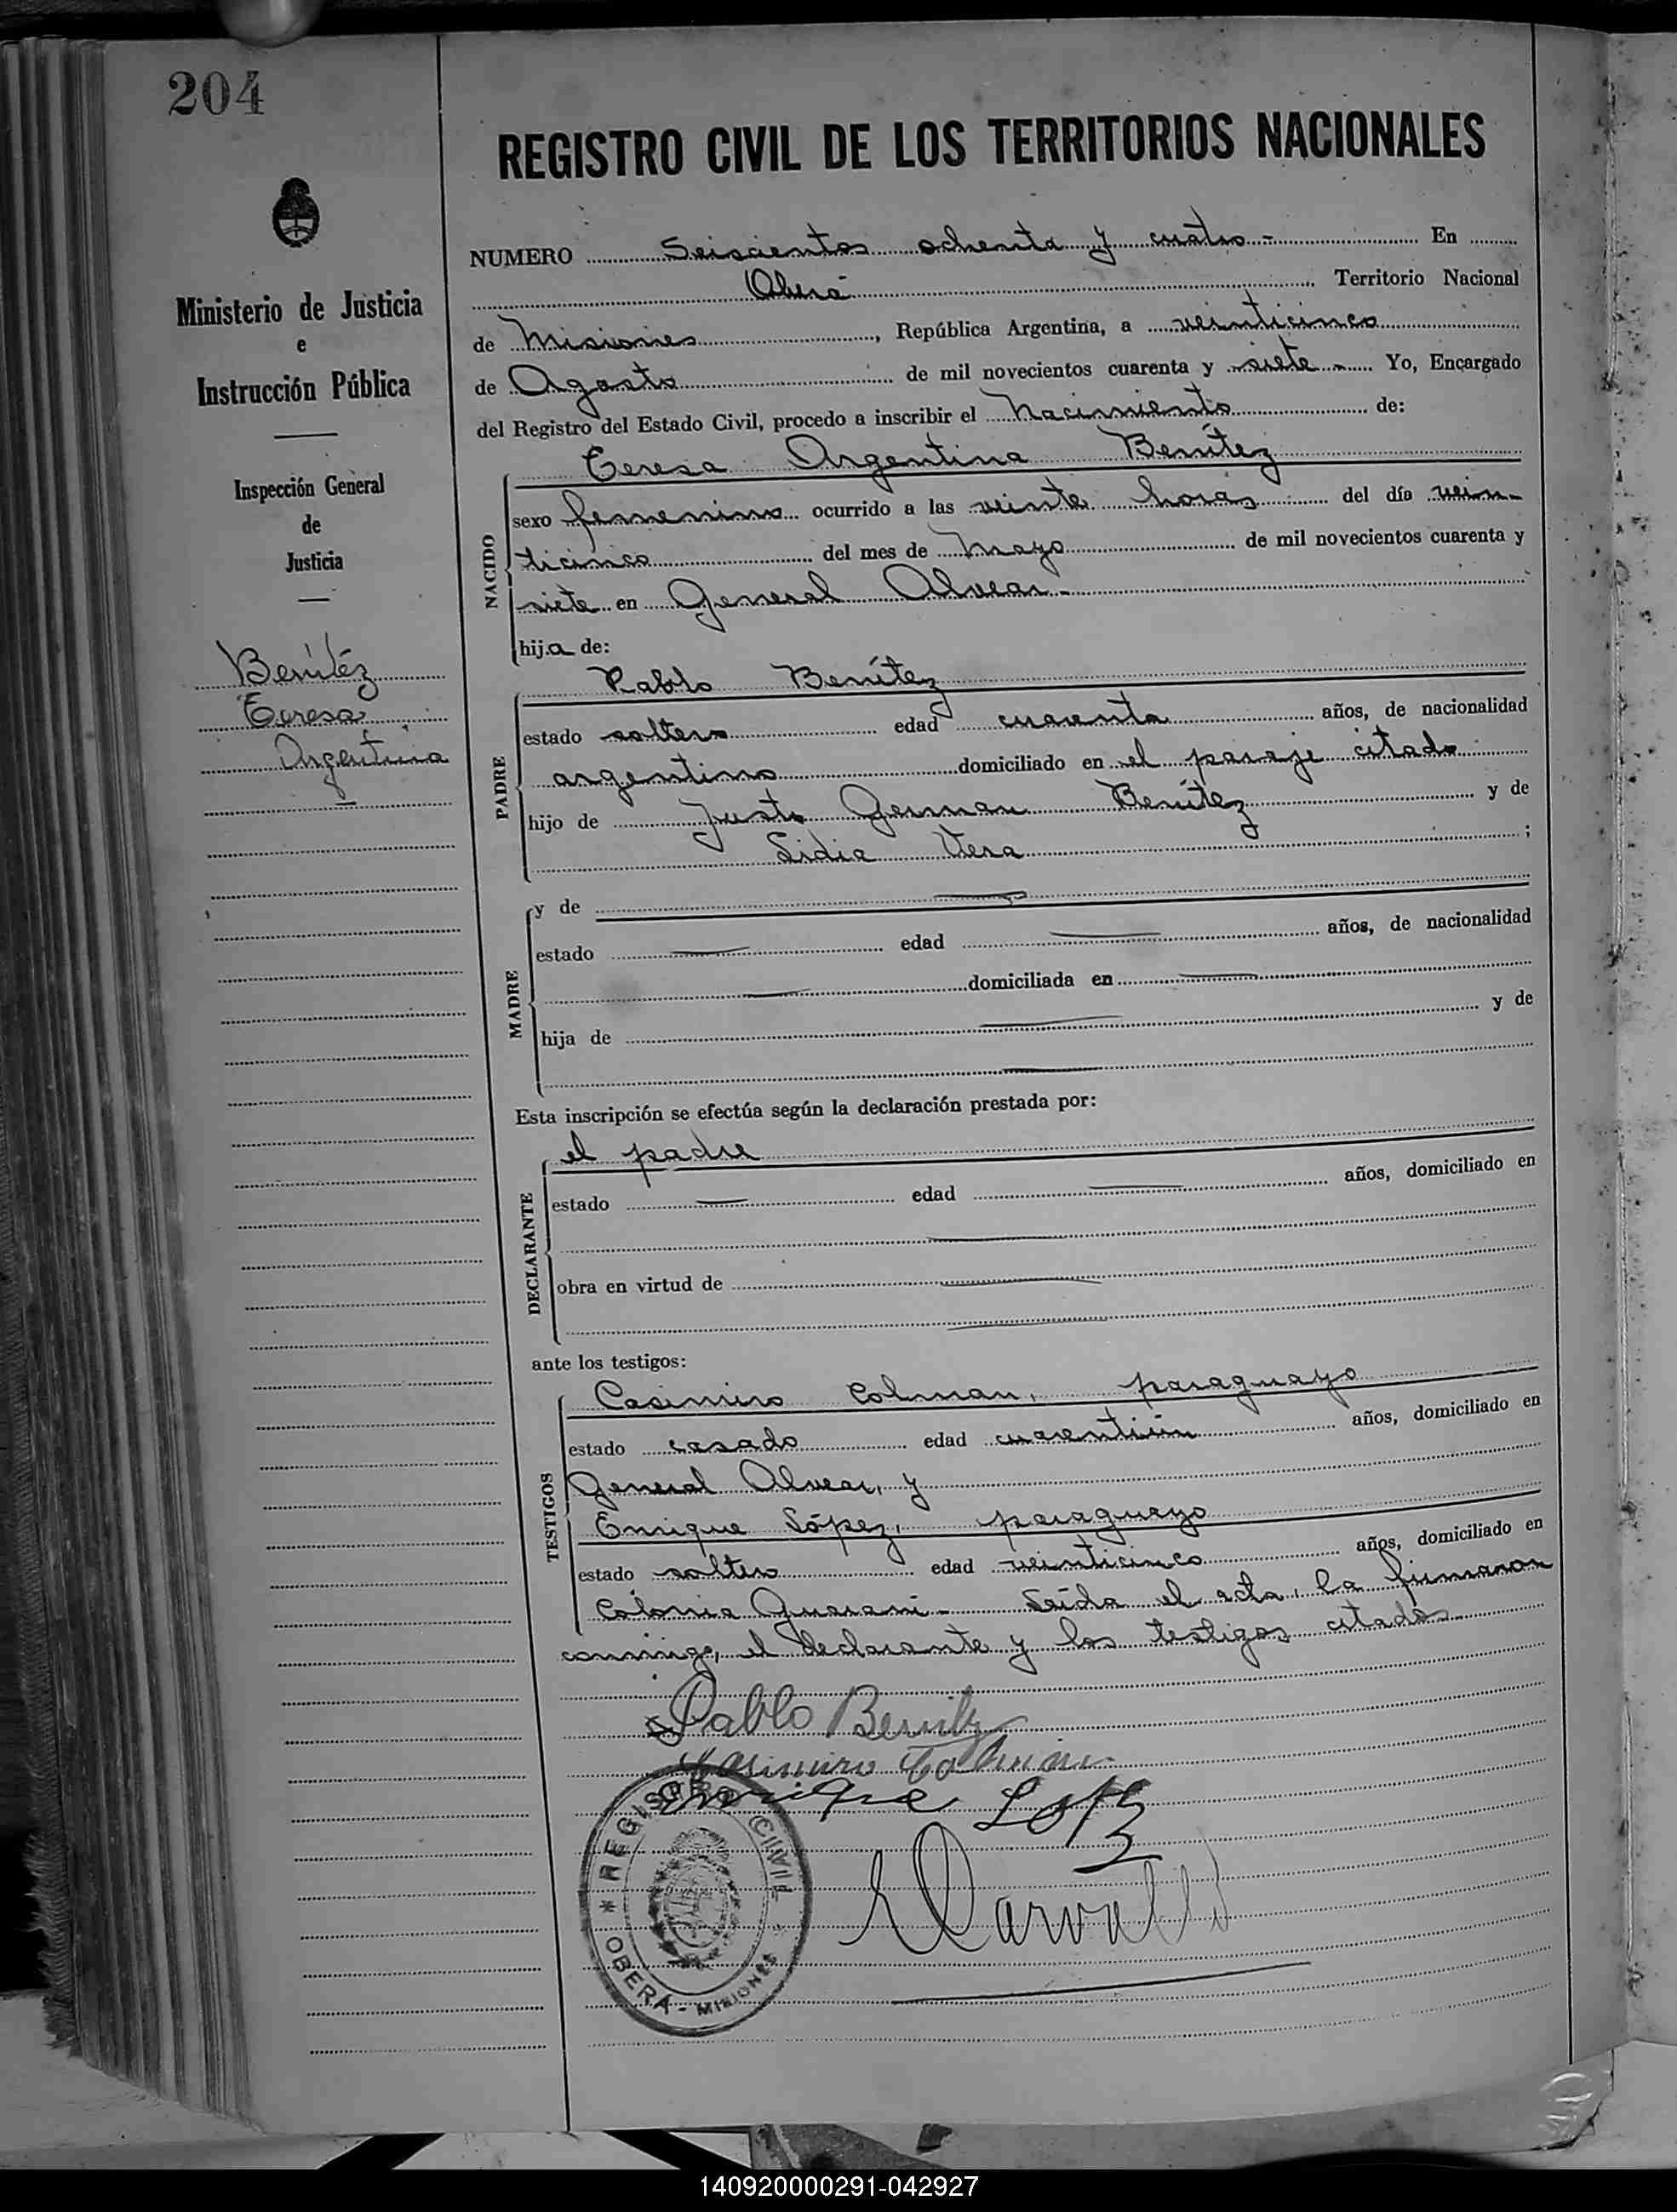 204
REGISTRO CIVIL DE LOS TERRITORIOS NACIONALES
Ministerio de Justicia
e
Instrucción Pública
Inspección General
de
Justicia
Benítéz
Teresa
Argentina
NUMERO Seiscientos ochenta y cuatro.- En
Oberá Territorio Nacional
de Misiones, República Argentina, a veinticinco
de Agosto de mil novecientos cuarenta y siete.- Yo, Encargado
del Registro del Estado Civil, procedo a inscribir el Nacimiento de:
Teresa Argentina Benítez
NACIDO
sexo femenino ocurrido a las veinte horas del día vein-
ticinco del mes de Mayo de mil novecientos cuarenta y
siete en General Alvear.-
hija de:
Pablo Benítez
PADRE
estado soltero edad cuarenta años, de nacionalidad
argentino domiciliado en el paraje citado
hijo de Justo German Benítez y de
Lidia Vera;
MADRE
y de
estado edad años, de nacionalidad
domiciliada en
hija de y de
Esta inscripción se efectúa según la declaración prestada por:
el padre
DECLARANTE
estado edad años, domiciliado en
obra en virtud de
ante los testigos:
Casimiro Colman, paraguayo
TESTIGOS
estado casado edad cuarentiún años, domiciliado en
General Alvear, y
Enrique López, paraguayo
estado soltero edad veinticinco años, domiciliado en
Colonia Guarani.- Leída el acta, la firmaron
conmigo, el declarante y los testigos citados.-
Pablo Benitz
Casimiro Colman
Enrique
REGISTRO CIVIL
OBERA - MISIONES
140920000291-042927